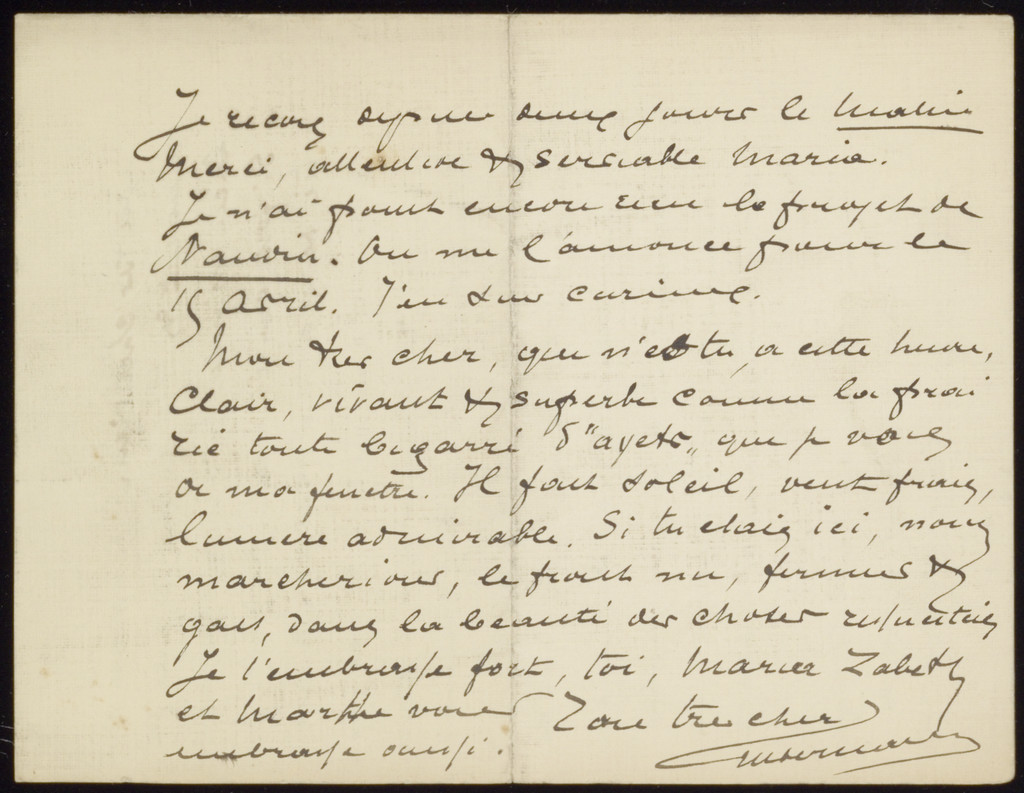 Je reçois depuis deux jours le Matin
Merci, attentive & serviable Maria.
Je n'ai point encore reçu le projet de
Naudin. On me l'annonce pour le
15 Avril. J'en suis curieux.
Mon très cher, que n'es tu, à cette heure,
Clair, vivant & superbe comme la prai
rie toute bigarré d'"ayets" que je vois
de ma fenêtre. Il fait soleil, vent frais,
lumière admirable. Si tu étais ici, nous
marcherions, le front nu, fermes &
gais, dans la beauté des choses
Je t'embrasse fort, toi, Maria Zabeth
et Marthe vous
embrasse aussi. très cher